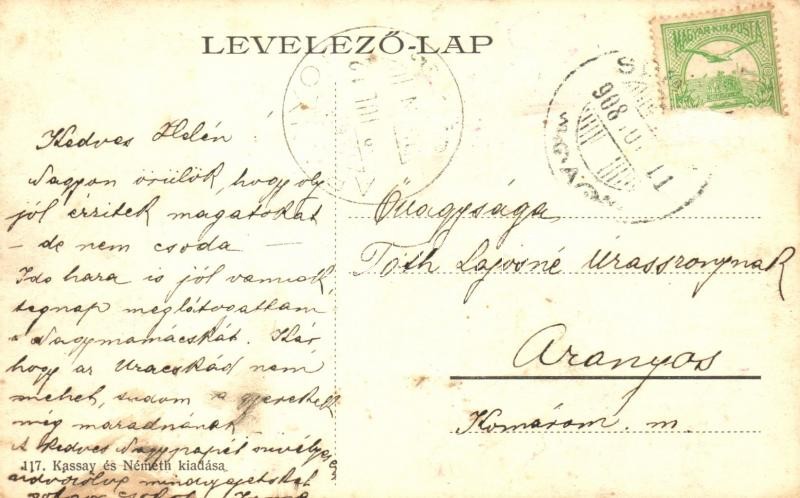 LEVELEZŐ-LAP
MAGYAR KIR. POSTA
908
Kedves Helén!
Nagyon örülök, hogy oly
jól érzitek magatokat
- de nem csoda -
Ide haza is jól vannak,
tegnap meglátogattam
a Nagymamácskát. Kár,
hogy az Uracskád nem
mehet, tudom a gyerekek
még maradnának
A kedves Nagypapát
üdvözölve mindnyájatokat
117. Kassay és Németh kiadása
Őnagysága
Tóth Lajosné Úrasszonynak
Aranyos
Komárom. m.